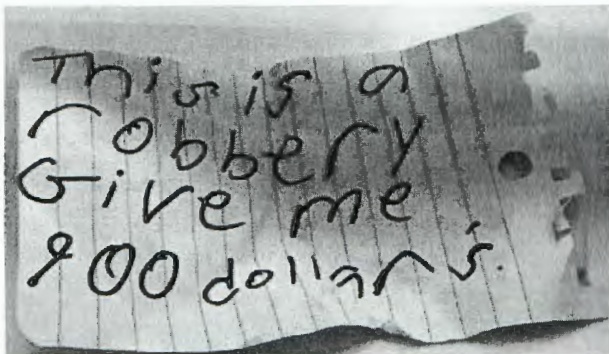 This is a
robbery
Give me
900 dollars.